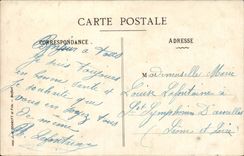 CARTE POSTALE
CORRESPONDANCE
ADRESSE
Bonjour à tous
Je suis toujours
en bonne santé et
je souhaite que
vous en soyez tous
de même
Mademoiselle Marie
Louise Lafontaine à
St Symphorien D'ancelles
Saône et Loire